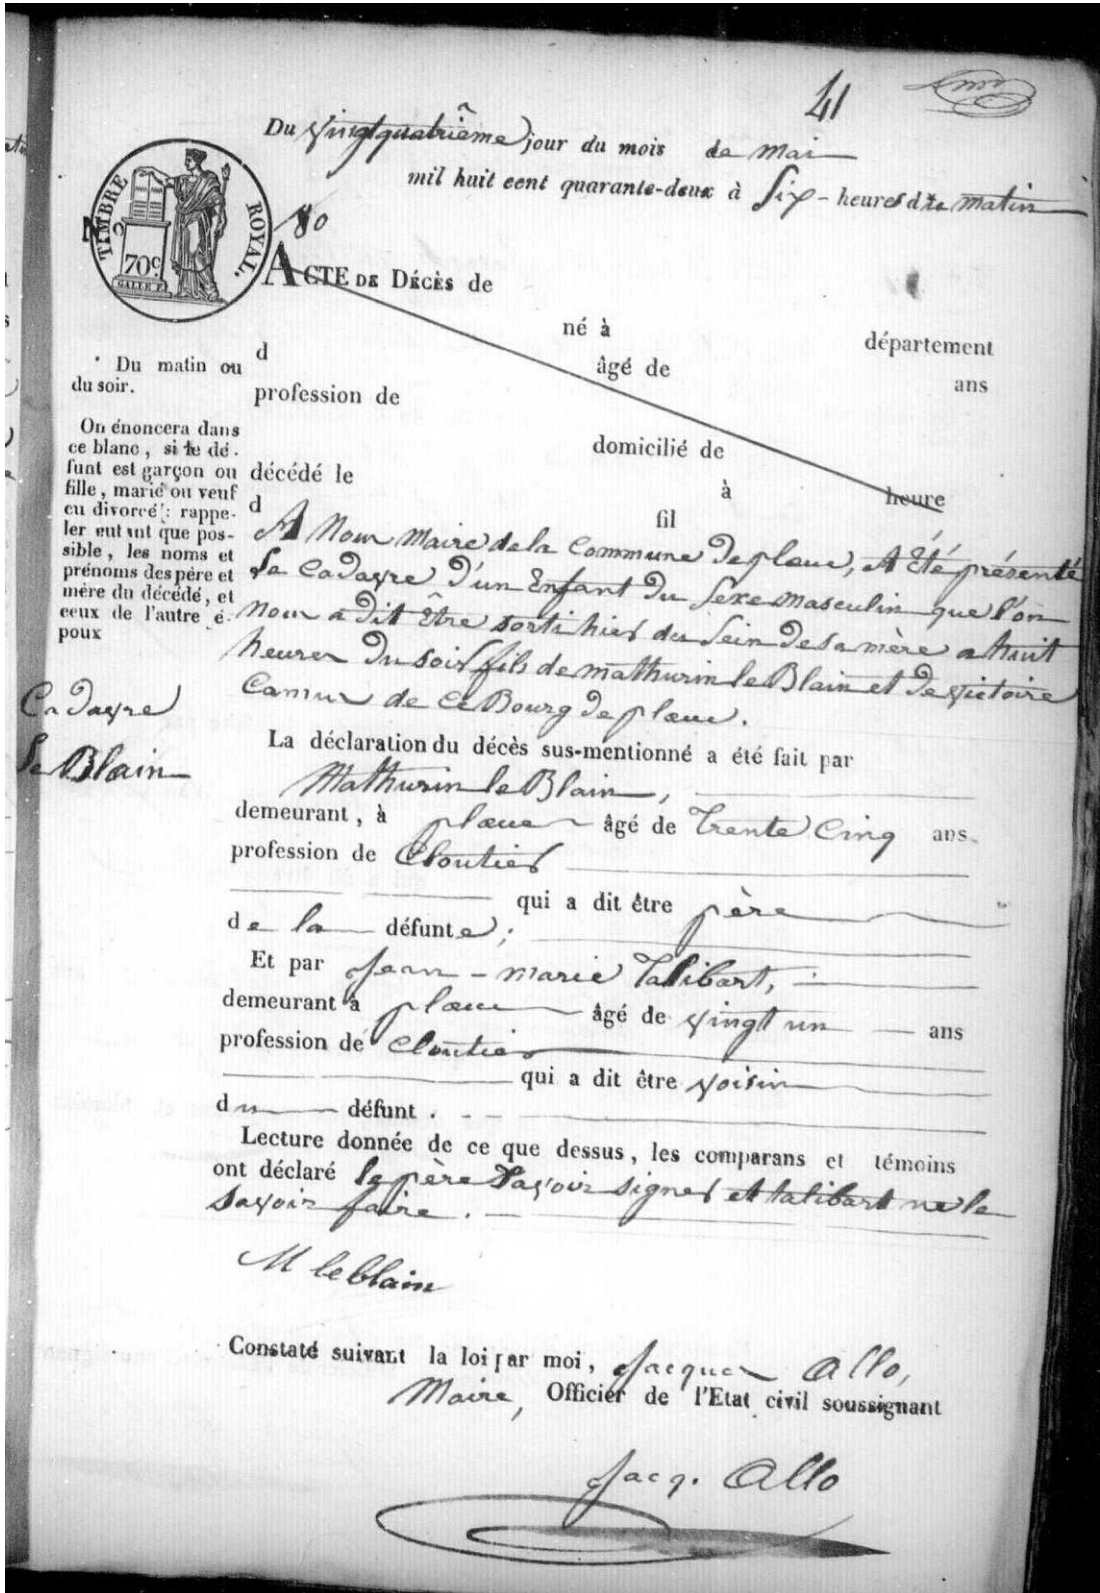 41
Du vingtquatrième jour du mois de mai
mil huit cent quarante-deux à six heures du matin
TIMBRE ROYAL.
70c.
No 80
ACTE DE DÉCÈS de
né à département
d âgé de ans
profession de
domicilié de
décédé le à heure
d fil
* Du matin ou
du soir.
On énoncera dans
ce blanc, si le dé-
funt est garçon ou
fille, marié ou veuf
ou divorcé: rappe-
ler autant que pos-
sible, les noms et
prénoms des père et
mère du décédé, et
ceux de l'autre é-
poux
Cadavre
Le Blain
A Nous Maire de la Commune de plœuc, A Été présenté
Le Cadavre d'un Enfant du Sexe masculin que l'on
nous a dit Être sorti hier du Sein de sa mère a huit
heures du soir fils de mathurin le Blain et de victoire
Camus de ce Bourg de plœuc.
La déclaration du décès sus-mentionné a été fait par
Mathurin le Blain,
demeurant, à plœuc âgé de Trente Cinq ans
profession de Cloutier
qui a dit être père
de la défunte;
Et par Jean-marie Talibart,
demeurant à plœuc âgé de vingt un ans
profession de Cloutier
qui a dit être voisin
du défunt.
Lecture donnée de ce que dessus, les comparans et témoins
ont déclaré le père savoir signer et talibart ne le
savoir faire.
M leblain
Constaté suivant la loi par moi, Jacques Allo,
Maire, Officier de l'Etat civil soussignant
Jacq. Allo